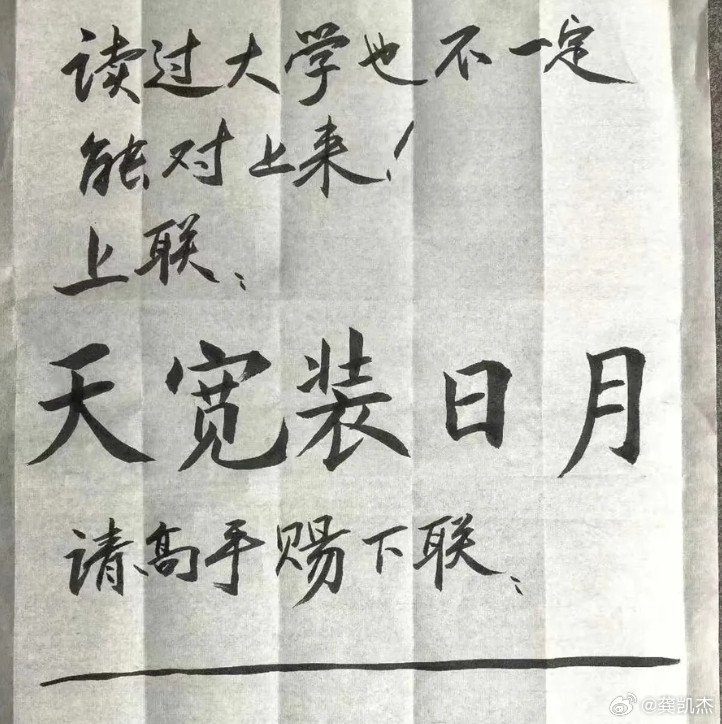 读过大学也不一定
能对上来！
上联：
天宽装日月
请高手赐下联：
@龚凯杰